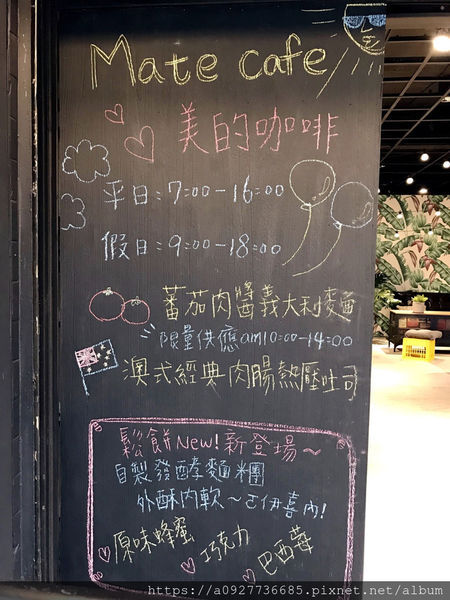 Mate cafe
美的咖啡
平日:7:00-16:00
假日:9:00-18:00
蕃茄肉醬義大利麵
限量供應am10:00-14:00
澳式經典肉腸熱壓吐司
鬆餅New!新登場~
自製發酵麵糰
外酥肉軟~ㄛ伊喜內!
原味蜂蜜
巧克力
巴西莓
https://a0927736685.pixnet.net/album